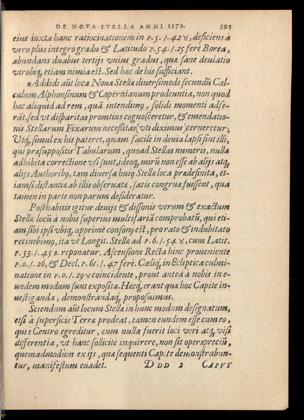 DE NOVA STELLA ANNI 1572. 395
eius iuxta hanc ratiocinationem in P. 5. 1. 42 ½, deficiens à
vero plus integro gradu & Latitudo P. 54. 1. 25 ferè Borea,
abundans duabus tertijs unius gradus, quæ sane deviatio
utrobiq; etiam nimia est. Sed hæc de his sufficiant.
Addidi aūt loca Novæ Stellæ diversimode secundū Cal-
culum Alphonsinum & Copernianum producta, non quod
hac aliquid ad rem, quā intendimus, solidi momenti adfe-
rāt, sed ut disparitas promtius cognosceretur, & emendatio-
nis Stellarum Fixarum necessitas, uti diximus cerneretur;
Utq; simul ex his pateret, quam facile in devia lapsi sint illi,
qui præsuppositis Tabularum, quoad Stellas numeris, nulla
adhibita correctione usi sunt, ideoq; mirū non esse ab alijs atq;
alijs Authoribꝰ, tam diversa huic Stellæ loca prædefinita, et-
iamsi distantiæ ab illis observatæ, satis congruæ fuissent, quæ
tamen in parte non parum desideratur.
Posthabitis igitur devijs & dissonis verum & exactum
Stellæ locū à nobis superius multifariā comprobatū, qui eti-
am sibi ipsi ubiq; apprimè consonꝰ est, pro rato & indubitato
retinebimus, ita ut Longit. Stellæ ad P. 6. 1. 54 ♉, cum Latit.
P. 53. 1. 45 B. reponatur. Ascensione Recta hinc proveniente
P. 0. 1. 26, & Decl. P. 61. 1. 47 ferè. Cœliq; in Eclipticâ culmi-
natione in P. 0. 1. 29 ♈ coincidente, prout antea à nobis in e-
undem modum sunt exposita. Hæcq; erant quæ hoc Capite in-
vestiganda, demonstrandaq; proposuimus.
Sciendum aūt locum Stellæ in hunc modum designatum,
etsi à superficie Terræ prodeat, tamen eundem esse cum eo,
qui è Centro egreditur, cum nulla fuerit loci veri atq; visi
differentia, ut hanc sollicitè inquirere, non sit operæpreciū,
quemadmodum ex ijs, quæ sequenti Capite demonstrabun-
tur, manifestum evadet. DDD 2 CAPVT